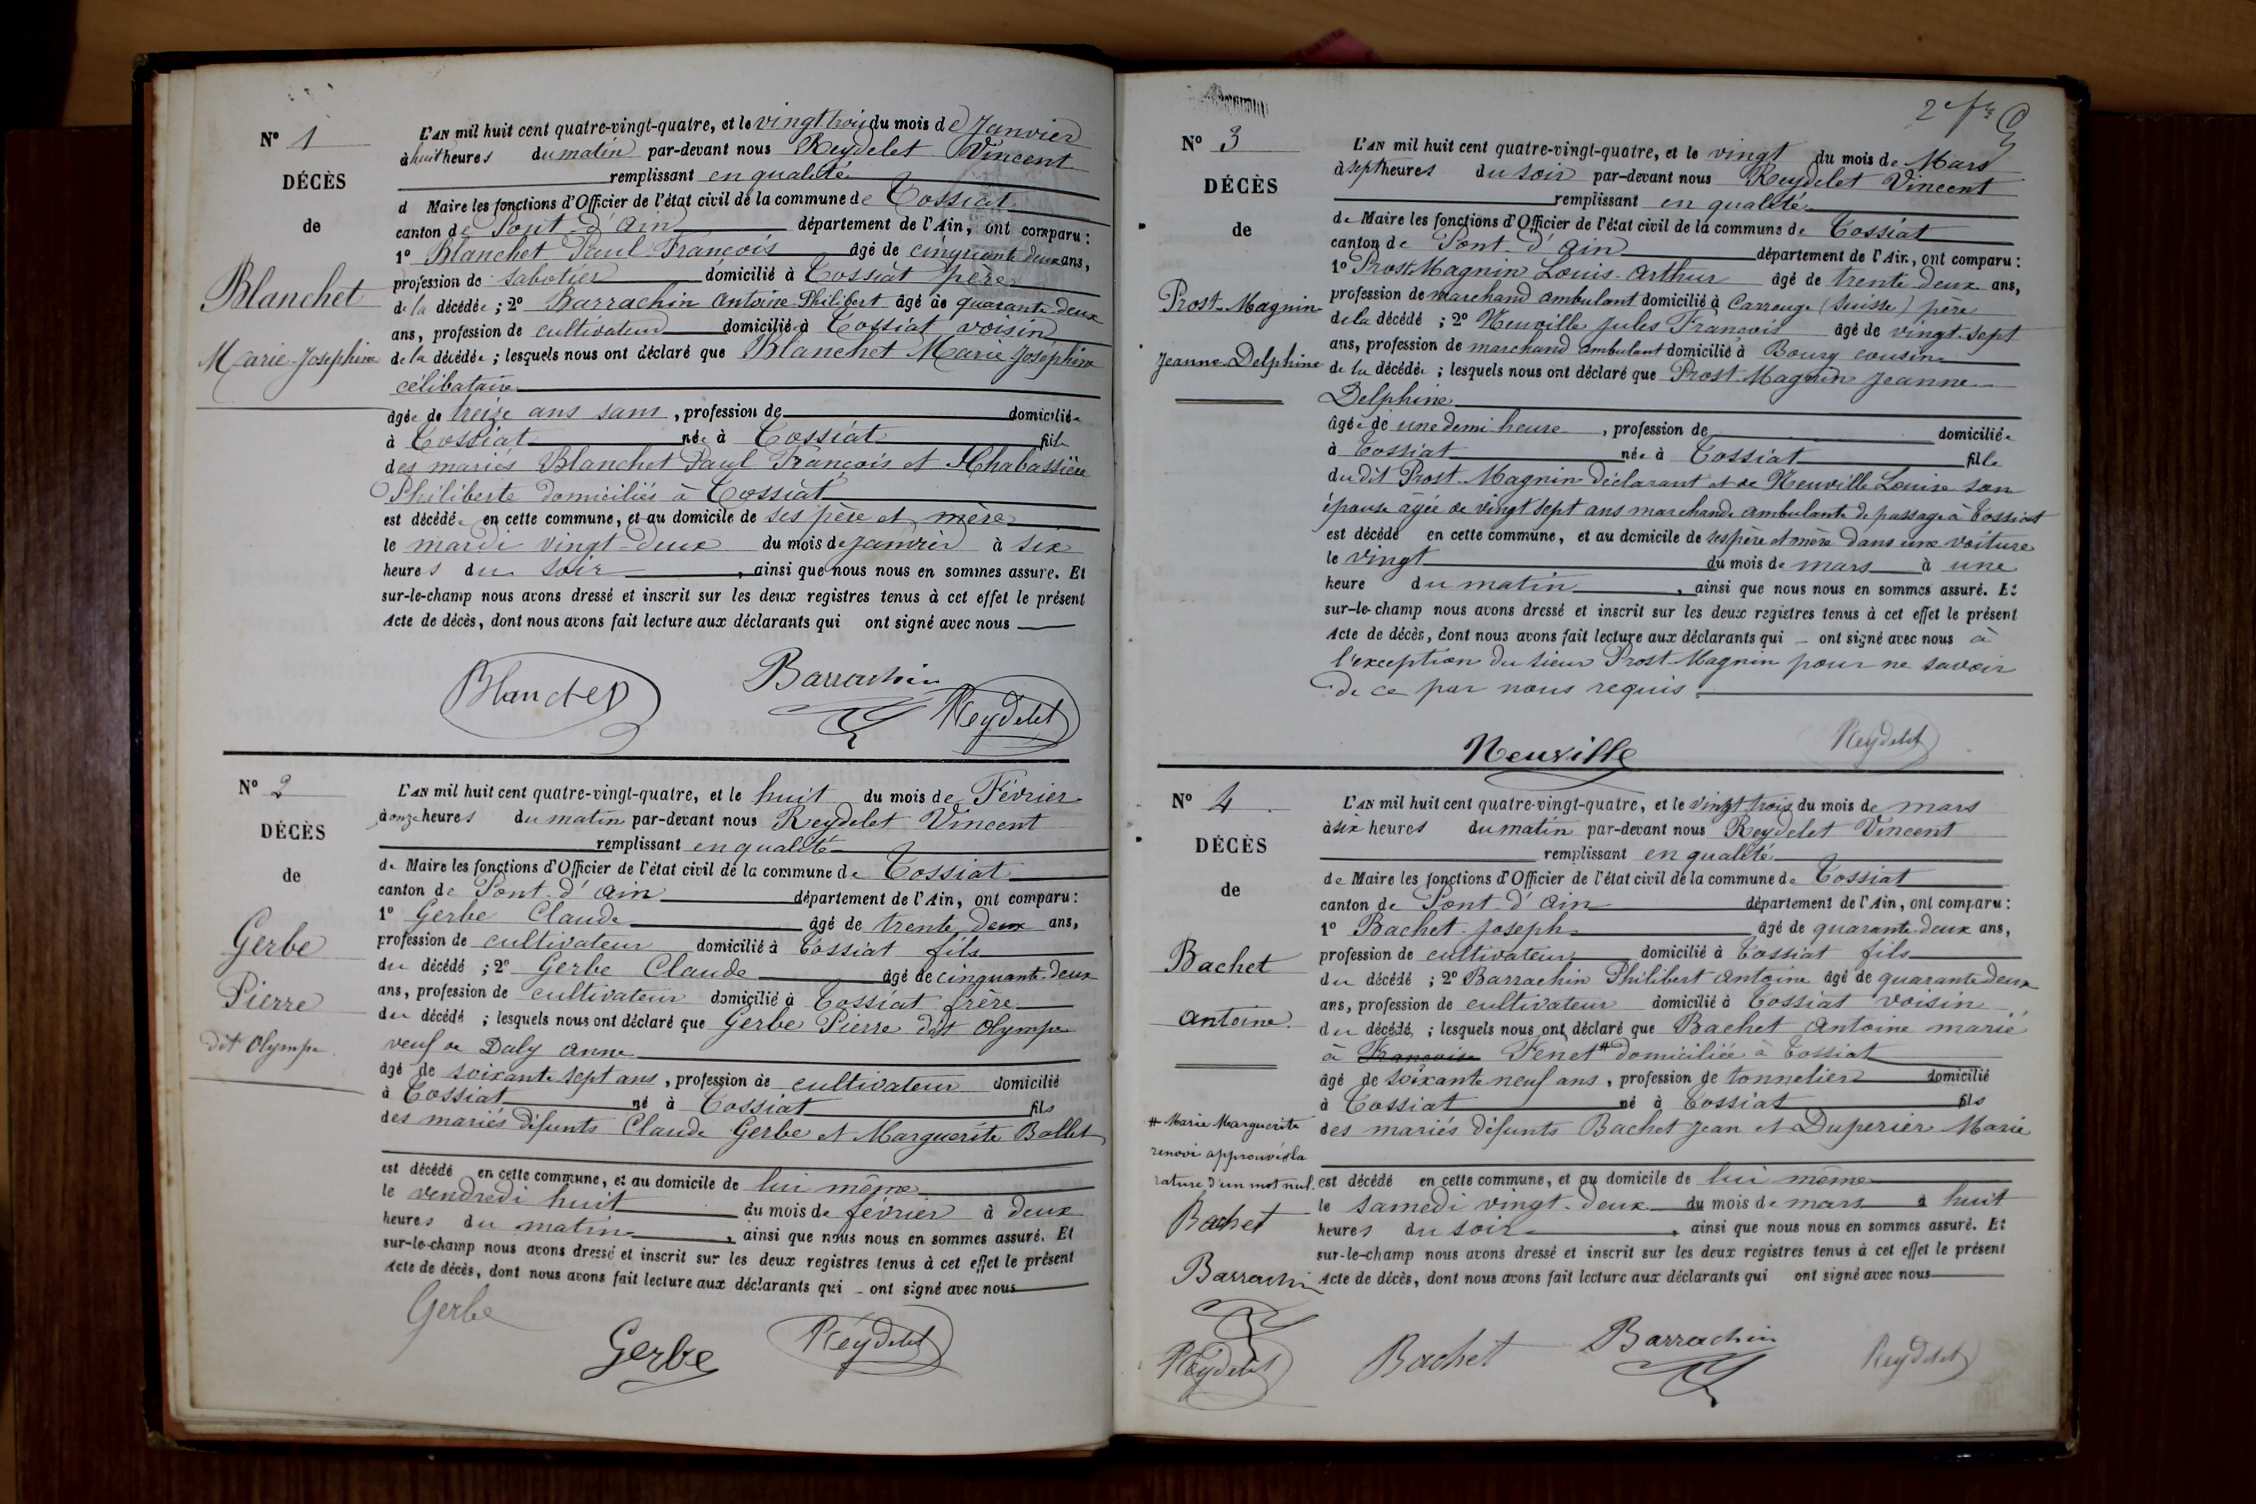 N° 1
DÉCÈS
de
Blanchet
Marie-Joséphine
L'AN mil huit cent quatre-vingt-quatre, et le vingt trois du mois de Janvier
à huit heures du matin par-devant nous Reydelet Vincent
remplissant en qualité
d Maire les fonctions d'Officier de l'état civil de la commune de Tossiat
canton de Pont-d'Ain département de l'Ain, ont comparu :
1° Blanchet Paul François âgé de cinquante deux ans,
profession de sabotier domicilié à Tossiat père
de la décédée ; 2° Barrachin Antoine Philibert âgé de quarante deux
ans, profession de cultivateur domicilié à Tossiat voisin
de la décédée ; lesquels nous ont déclaré que Blanchet Marie Joséphine
célibataire
âgée de treize ans sans , profession de domiciliée
à Tossiat née à Tossiat fille
des mariés Blanchet Paul François et Chabassière
Philiberte domiciliés à Tossiat
est décédée en cette commune, et au domicile de ses père et mère
le mardi vingt-deux du mois de janvier à six
heures du soir , ainsi que nous nous en sommes assuré. Et
sur-le-champ nous avons dressé et inscrit sur les deux registres tenus à cet effet le présent
Acte de décès, dont nous avons fait lecture aux déclarants qui ont signé avec nous
Blanchet Barrachin Reydelet
N° 2
DÉCÈS
de
Gerbe
Pierre
dit Olympe
L'AN mil huit cent quatre-vingt-quatre, et le huit du mois de Février
à onze heures du matin par-devant nous Reydelet Vincent
remplissant en qualité
de Maire les fonctions d'Officier de l'état civil de la commune de Tossiat
canton de Pont-d'Ain département de l'Ain, ont comparu :
1° Gerbe Claude âgé de trente deux ans,
profession de cultivateur domicilié à Tossiat fils
du décédé ; 2° Gerbe Claude âgé de cinquante-deux
ans, profession de cultivateur domicilié à Tossiat frère
du décédé ; lesquels nous ont déclaré que Gerbe Pierre dit Olympe
veuf de Daly Anne
âgé de soixante sept ans , profession de cultivateur domicilié
à Tossiat né à Tossiat fils
des mariés défunts Claude Gerbe et Marguerite Bollet
est décédé en cette commune, et au domicile de lui même
le vendredi huit du mois de février à deux
heures du matin , ainsi que nous nous en sommes assuré. Et
sur-le-champ nous avons dressé et inscrit sur les deux registres tenus à cet effet le présent
Acte de décès, dont nous avons fait lecture aux déclarants qui ont signé avec nous
Gerbe Gerbe Reydelet
N° 3
DÉCÈS
de
Prost-Magnin
Jeanne-Delphine
L'AN mil huit cent quatre-vingt-quatre, et le vingt du mois de Mars
à sept heures du soir par-devant nous Reydelet Vincent
remplissant en qualité
de Maire les fonctions d'Officier de l'état civil de la commune de Tossiat
canton de Pont-d'Ain département de l'Ain, ont comparu :
1° Prost-Magnin Louis-Arthur âgé de trente deux ans,
profession de marchand ambulant domicilié à Carrouge (Suisse) père
de la décédé ; 2° Neuville Jules François âgé de vingt-sept
ans, profession de marchand ambulant domicilié à Bourg cousin
de la décédée ; lesquels nous ont déclaré que Prost-Magnin Jeanne
Delphine
âgée de une demi heure , profession de domiciliée
à Tossiat née à Tossiat fille
du dit Prost-Magnin déclarant et de Neuville Louise son
épouse âgée de vingt sept ans marchande ambulante de passage à Tossiat
est décédé en cette commune, et au domicile de ses père et mère dans une voiture
le vingt du mois de mars à une
heure du matin , ainsi que nous nous en sommes assuré. Et
sur-le-champ nous avons dressé et inscrit sur les deux registres tenus à cet effet le présent
Acte de décès, dont nous avons fait lecture aux déclarants qui ont signé avec nous à
l'exception du sieur Prost-Magnin pour ne savoir
de ce par nous requis
Neuville Reydelet
N° 4
DÉCÈS
de
Bachet
Antoine.
# Marie Marguerite
renvoi approuvé la
rature d'un mot nul.
Bachet
Barrachin
Reydelet
L'AN mil huit cent quatre-vingt-quatre, et le vingt trois du mois de mars
à six heures du matin par-devant nous Reydelet Vincent
remplissant en qualité
de Maire les fonctions d'Officier de l'état civil de la commune de Tossiat
canton de Pont-d'Ain département de l'Ain, ont comparu :
1° Bachet Joseph âgé de quarante-deux ans,
profession de cultivateur domicilié à Tossiat fils
du décédé ; 2° Barrachin Philibert Antoine âgé de quarante deux
ans, profession de cultivateur domicilié à Tossiat voisin
du décédé ; lesquels nous ont déclaré que Bachet Antoine marié
à Françoise Fenet # domiciliée à Tossiat
âgé de soixante neuf ans , profession de tonnelier domicilié
à Tossiat né à Tossiat fils
des mariés défunts Bachet Jean et Duperier Marie
est décédé en cette commune, et au domicile de lui même
le samedi vingt-deux du mois de mars à huit
heures du soir , ainsi que nous nous en sommes assuré. Et
sur-le-champ nous avons dressé et inscrit sur les deux registres tenus à cet effet le présent
Acte de décès, dont nous avons fait lecture aux déclarants qui ont signé avec nous
Bachet Barrachin Reydelet